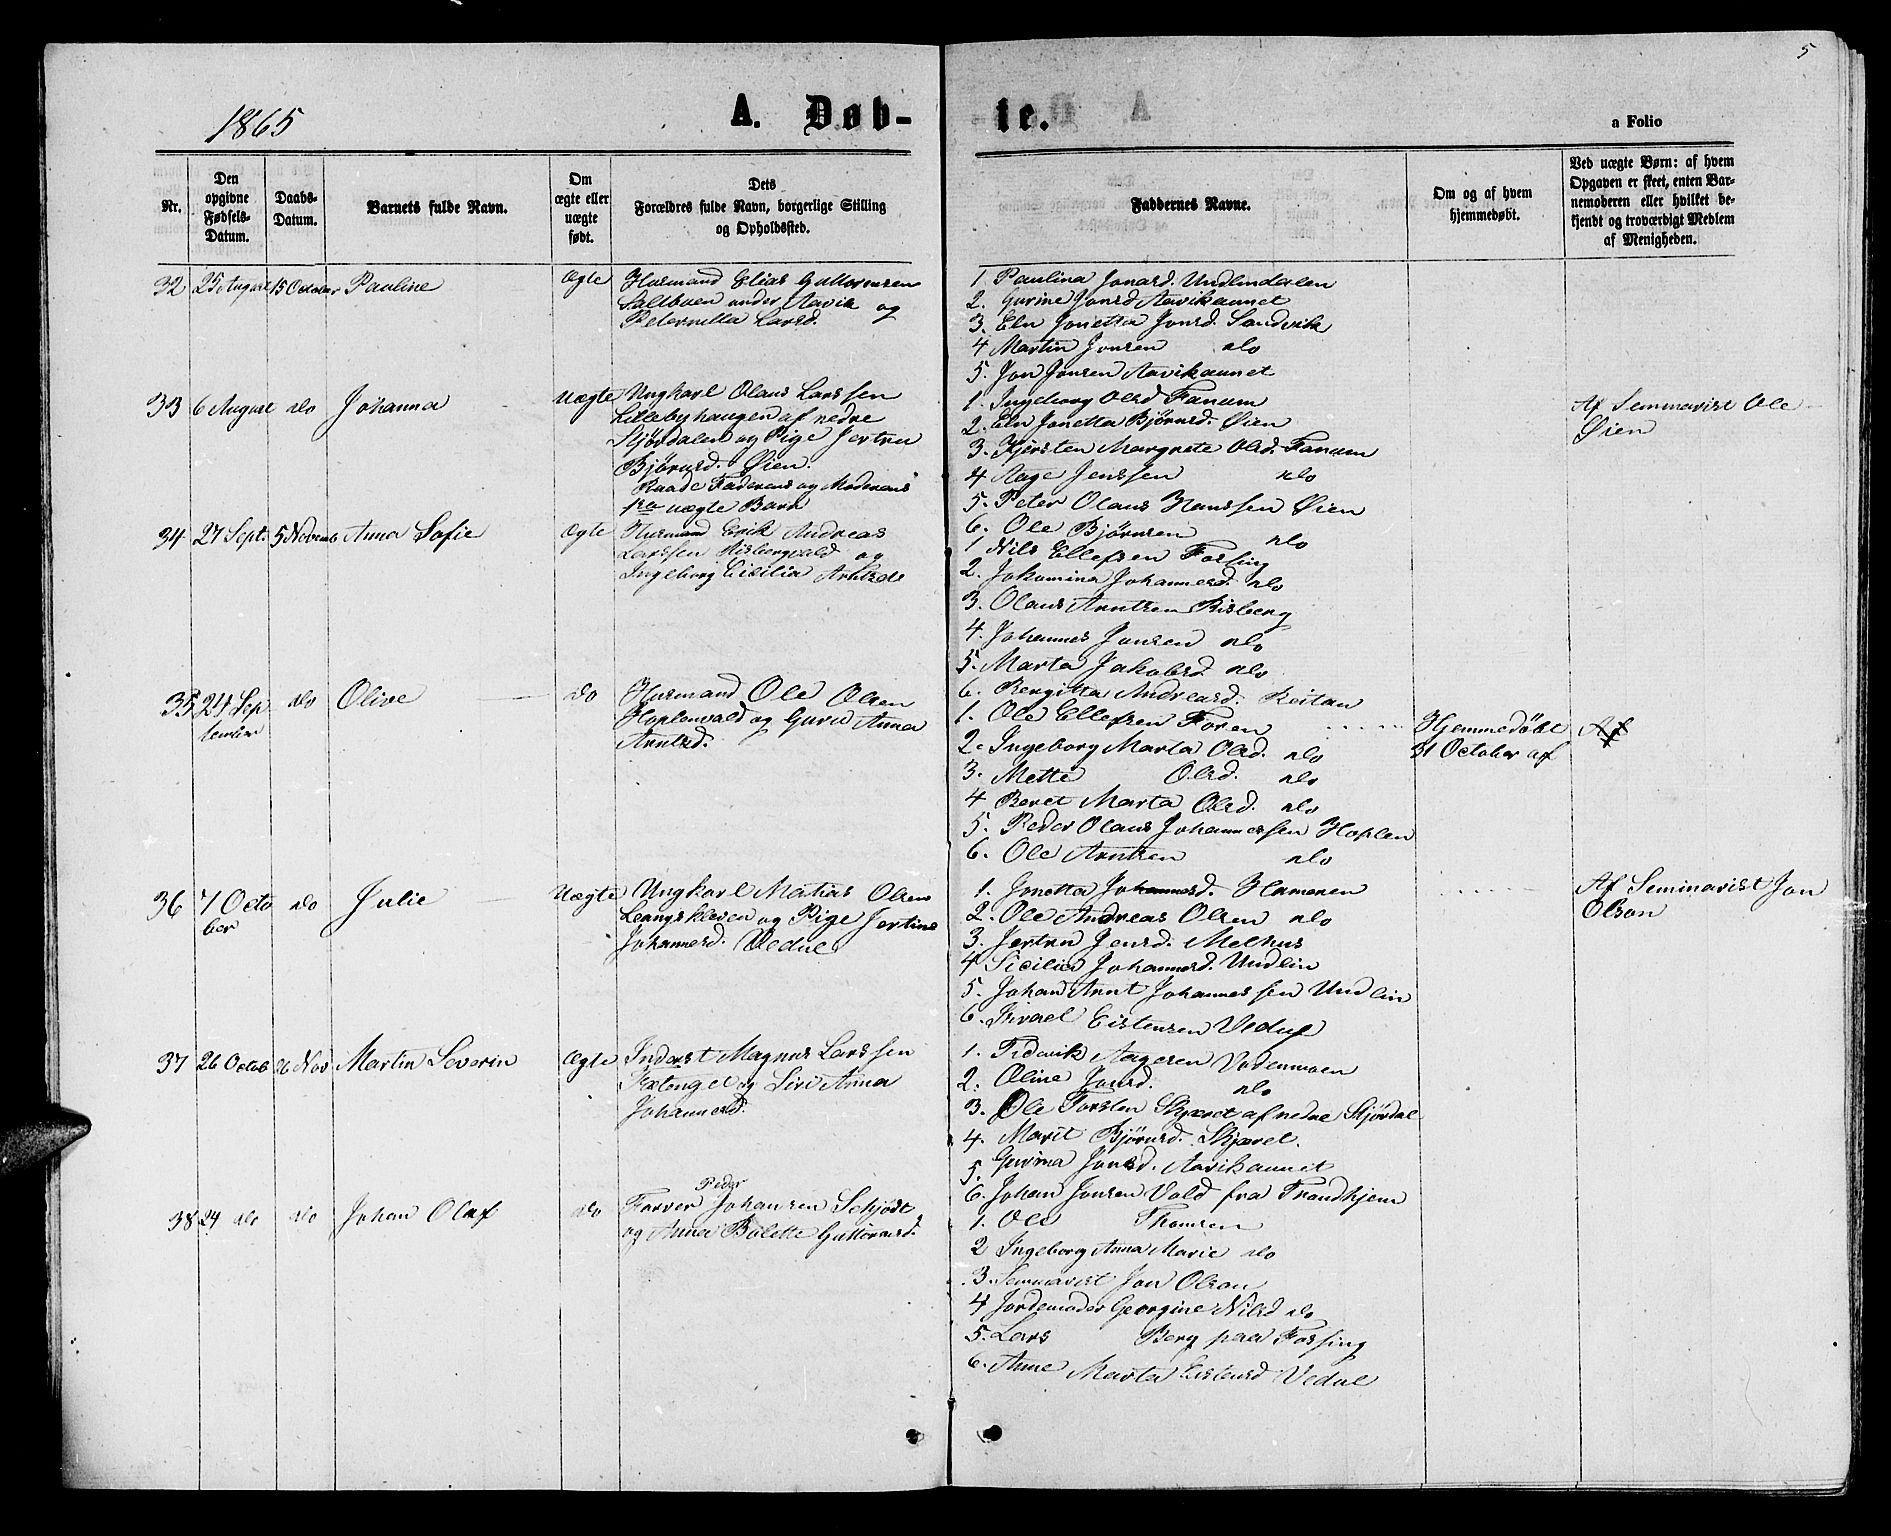 5
1865
A. Døb-
te.
a Folio
Nr.
Den opgivne Fødsels-Datum.
Daabs-Datum.
Barnets fulde Navn.
Om ægte eller uægte født.
Dets Forældres fulde Navn, borgerlige Stilling og Opholdssted.
Faddernes Navne.
Om og af hvem hjemmedøbt.
Ved uægte Børn: af hvem Opgaven er skeet, enten Barnemoderen eller hvilket bekjendt og troværdigt Medlem af Menigheden.
32 25 August 15 October Pauline Ægte Husmand Elias Guttormsen
Saltbuen under Aavik og
Peternella Larsd.
1 Paulina Jonasd. Undlindalen
2. Gurine Jonsd Aavikaunet
3. Eln Jonetta Jonsd. Sandvik
4 Martin Jonsen do
5. Jon Jonsen Aavikaunet
33 6 August do Johanna Uægte Ungkarl Olaus Larssen
Lillebyhaugen af nedre
Stjørdalen og Pige Jertru
Bjørnsd. Øien.
Baade Faderens og Moderens
1ste uægte Barn
1. Ingeborg Olsd Fanum
2. Eln Jonetta Bjørnsd. Øien
3. Kjersten Margrete Olsd. Fanum
4 Aage Jenssen do
5. Peter Olaus Hanssen Øien
6. Ole Bjørnsen do
Af Seminarist Ole
Øien
34 27 Sept. 5 Novemb Anna Sofie Ægte Husmand Erik Andreas
Larssen Risbergvald og
Ingeborg Cicilia Arntsd
1 Nils Ellefsen Forsing
2. Jakomina Johannesd. do
3. Olaus Arntsen Risberg
4. Johannes Jonsen do
5. Marta Jakobsd do
6. Bergitta Andreasd. Reitan
35 24 Sep
tember do Olive do Husmand Ole Olsen
Hoplenvald og Guru Anna
Arntsd.
1. Ole Ellefsen Foren
2. Ingeborg Marta Olsd. do
3. Mette Olsd. do
4 Beret Marta Olsd. do
5. Peder Olaus Johannessen Hoplen
6. Ole Arntsen do
Hjemmedöbt
31 October af
Af
36 7 Octo
ber do Julie Uægte Ungkarl Matias Olsen
Leangskleven og Pige Jertine
Johannesd. Vedul
1. Jonetta Johannesd. Hameren
2. Ole Andreas Olsen do
3. Jertru Jensd. Melhus
4 Sicilia Johannesd. Undlin
5. Johan Arnt Johannessen Undlin
6. Israel Eistensen Vedul
Af Seminarist Jon
Olson
37 26 Octob 26 Nov Martin Severin Ægte Inderst Magnus Larssen
Fxtenget og Siri Anna
Johannesd.
1. Fredrik Aagesen Vodenmoen
2. Oline Jonsd. do
3. Ole Forsten Skjæret af nedre Stjørdal
4. Marit Bjørnsd. Skjæret.
5. Gurina Jonsd. Aavikaunet
6. Johan Jonsen Vold fra Trondhjem
38 24 do do Johan Olaf do Farver Peder Johansen Schjödt
og Anna Bolette Guttormsd.
1. Ole Thomsen
2 Ingeborg Anna Marie do
3. Seminarist Jon Olson
4 Jordemoder Georgine Nilsd do
5. Lars Berg paa Forsing
6. Anne Marta Eistensd Vedul